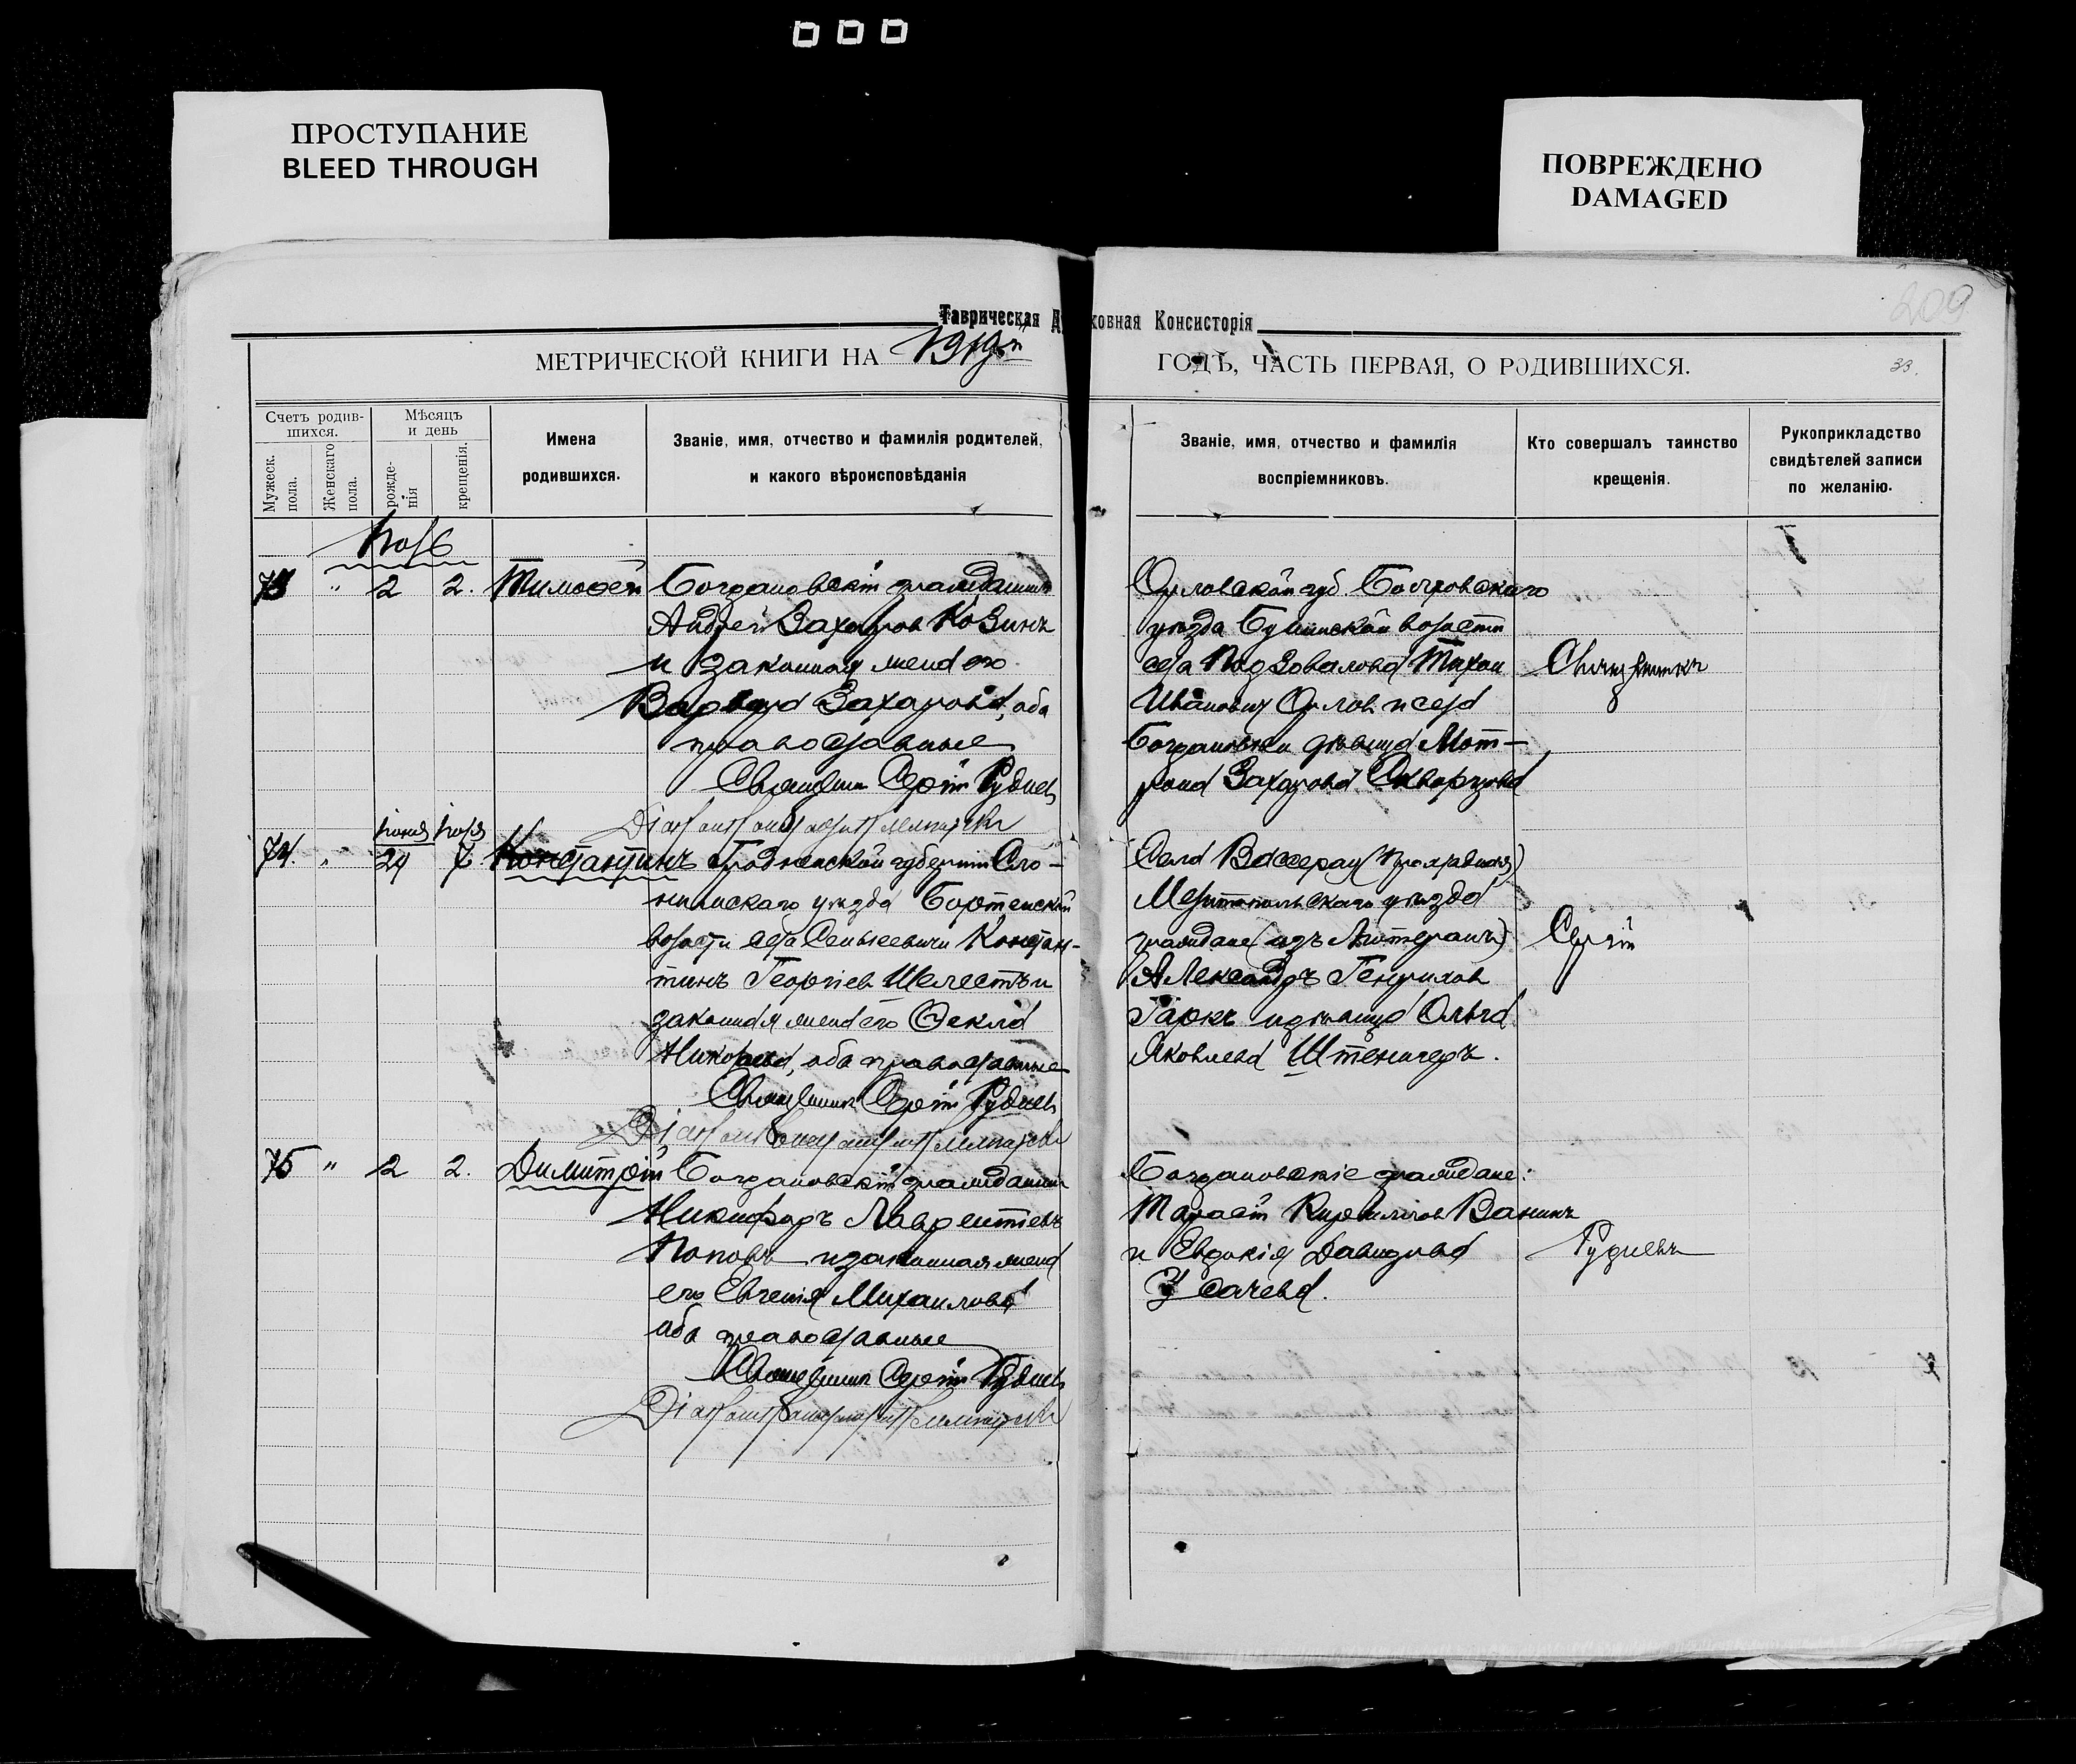 ПРОСТУПАНИЕ
BLEED THROUGH
ПОВРЕЖДЕНО
DAMAGED
209
Таврическая Духовная Консисторія
МЕТРИЧЕСКОЙ КНИГИ НА 1919й ГОДЪ, ЧАСТЬ ПЕРВАЯ, О РОДИВШИХСЯ.
33.
Счетъ родив-
шихся.
Мужеск.
пола.
Женскаго
пола.
Мѣсяцъ
и день
рожде-
нія
крещенія.
Имена
родившихся.
Званіе, имя, отчество и фамилія родителей,
и какого вѣроисповѣданія
Званіе, имя, отчество и фамилія
воспріемниковъ.
Кто совершалъ таинство
крещенія.
Рукоприкладство
свидѣтелей записи
по желанію.
Іюль
73 " 2 2. Тимофей Богдановскій гражданинъ
Андрей Захаров Козинъ
и законная жена его
Варвара Захарова, оба
православные
Священник Сергій Руднев
Орловской губ.
уѣзда волости
села Тихон
Иванович Орлов и села
Богдановки дѣвица Мот-
рона Захарова Скворцова
Священникъ
іюня іюля
74. " 29 7 Константинъ Гродненской губерніи Сло-
нимскаго уѣзда Бортенской
волости села Сеньковичи Констан-
тинъ Георгіев Шелестъ и
законная жена его Ѳекла
оба православные
Священник Сергій Руднев
Села Вассерау
Мелитопольскаго уѣзда
граждане (изъ Лютеранъ)
Александръ Генрихов
Гаркъ и дѣвица Ольга
Яковлева
Сергій
75 " 2 2. Димитрій Богдановскій гражданин
Никифоръ Лаврентіевъ
Поповъ и законная жена
его Евгенія Михаилова
оба православные
Священник Сергій Руднев
Богдановскіе граждане:
Тарасій Кириллов Ванинъ
и Евдокія Давидова
Усачева.
Рудневъ